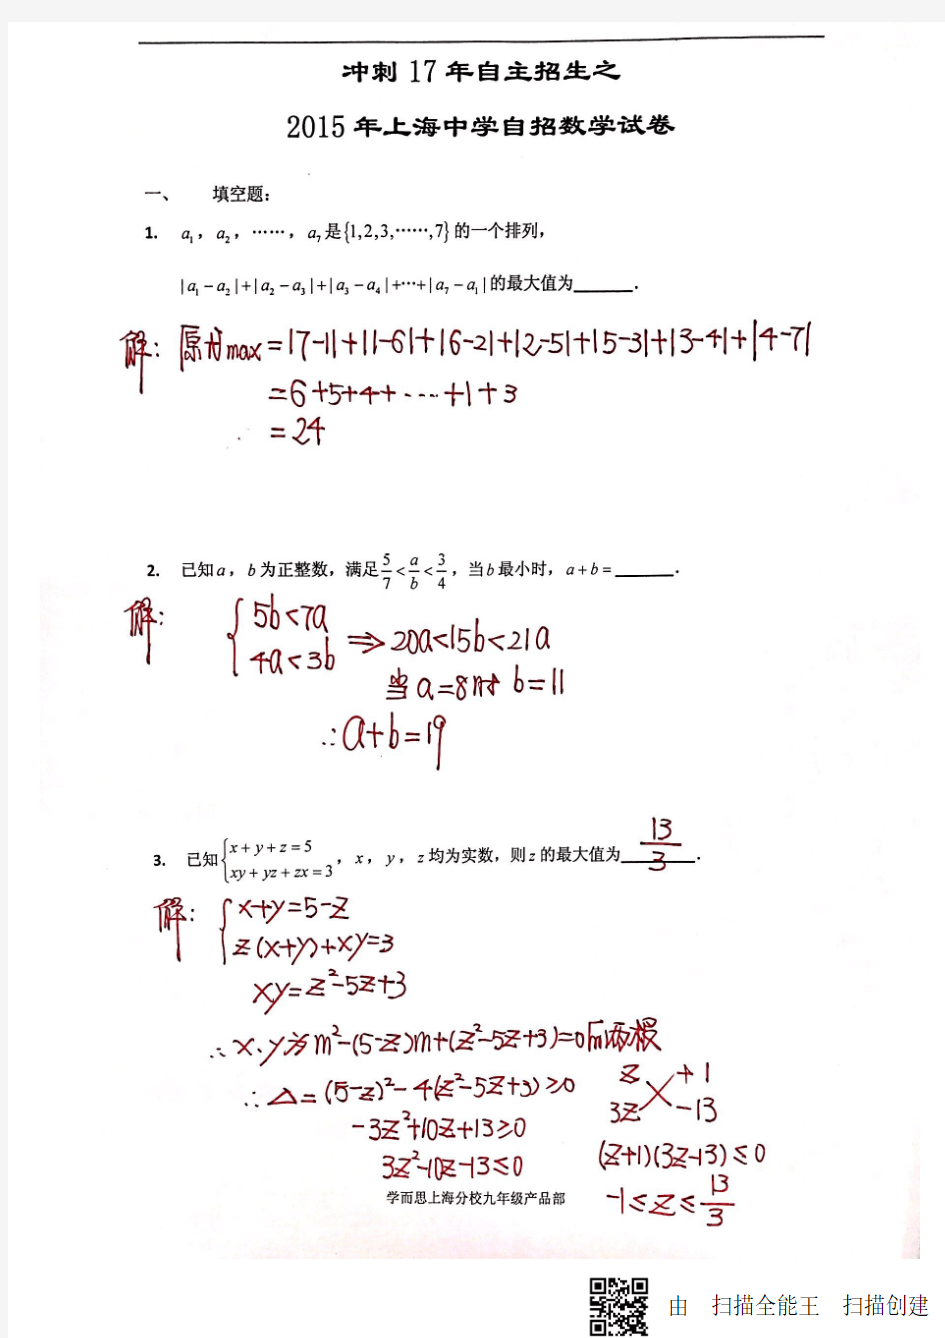 冲刺 17 年自主招生之
2015 年上海中学自招数学试卷
一、 填空题：
1. a₁，a₂，……，a₇是{1,2,3,……,7}的一个排列，
|a₁－a₂|+|a₂－a₃|+|a₃－a₄|+…+|a₇－a₁|的最大值为______．
解：原式max=|7-1|+|1-6|+|6-2|+|2-5|+|5-3|+|3-4|+|4-7|
=6+5+4+····+1+3
=24
2. 已知a，b为正整数，满足5/7<a/b<3/4，当b最小时，a+b=______．
解：{5b<7a
4a<3b ⇒20a<15b<21a
当a=8时 b=11
∴a+b=19
3. 已知{x+y+z=5
xy+yz+zx=3，x，y，z均为实数，则z的最大值为 13/3 ．
解：{x+y=5-z
z(x+y)+xy=3
xy=z²-5z+3
∴x、y为m²-(5-z)m+(z²-5z+3)=0的两根
∴△=(5-z)²-4(z²-5z+3)≥0
-3z²+10z+13≥0
3z²-10z-13≤0
z +1
3z -13
(z+1)(3z-13)≤0
-1≤z≤13/3
学而思上海分校九年级产品部
由 扫描全能王 扫描创建